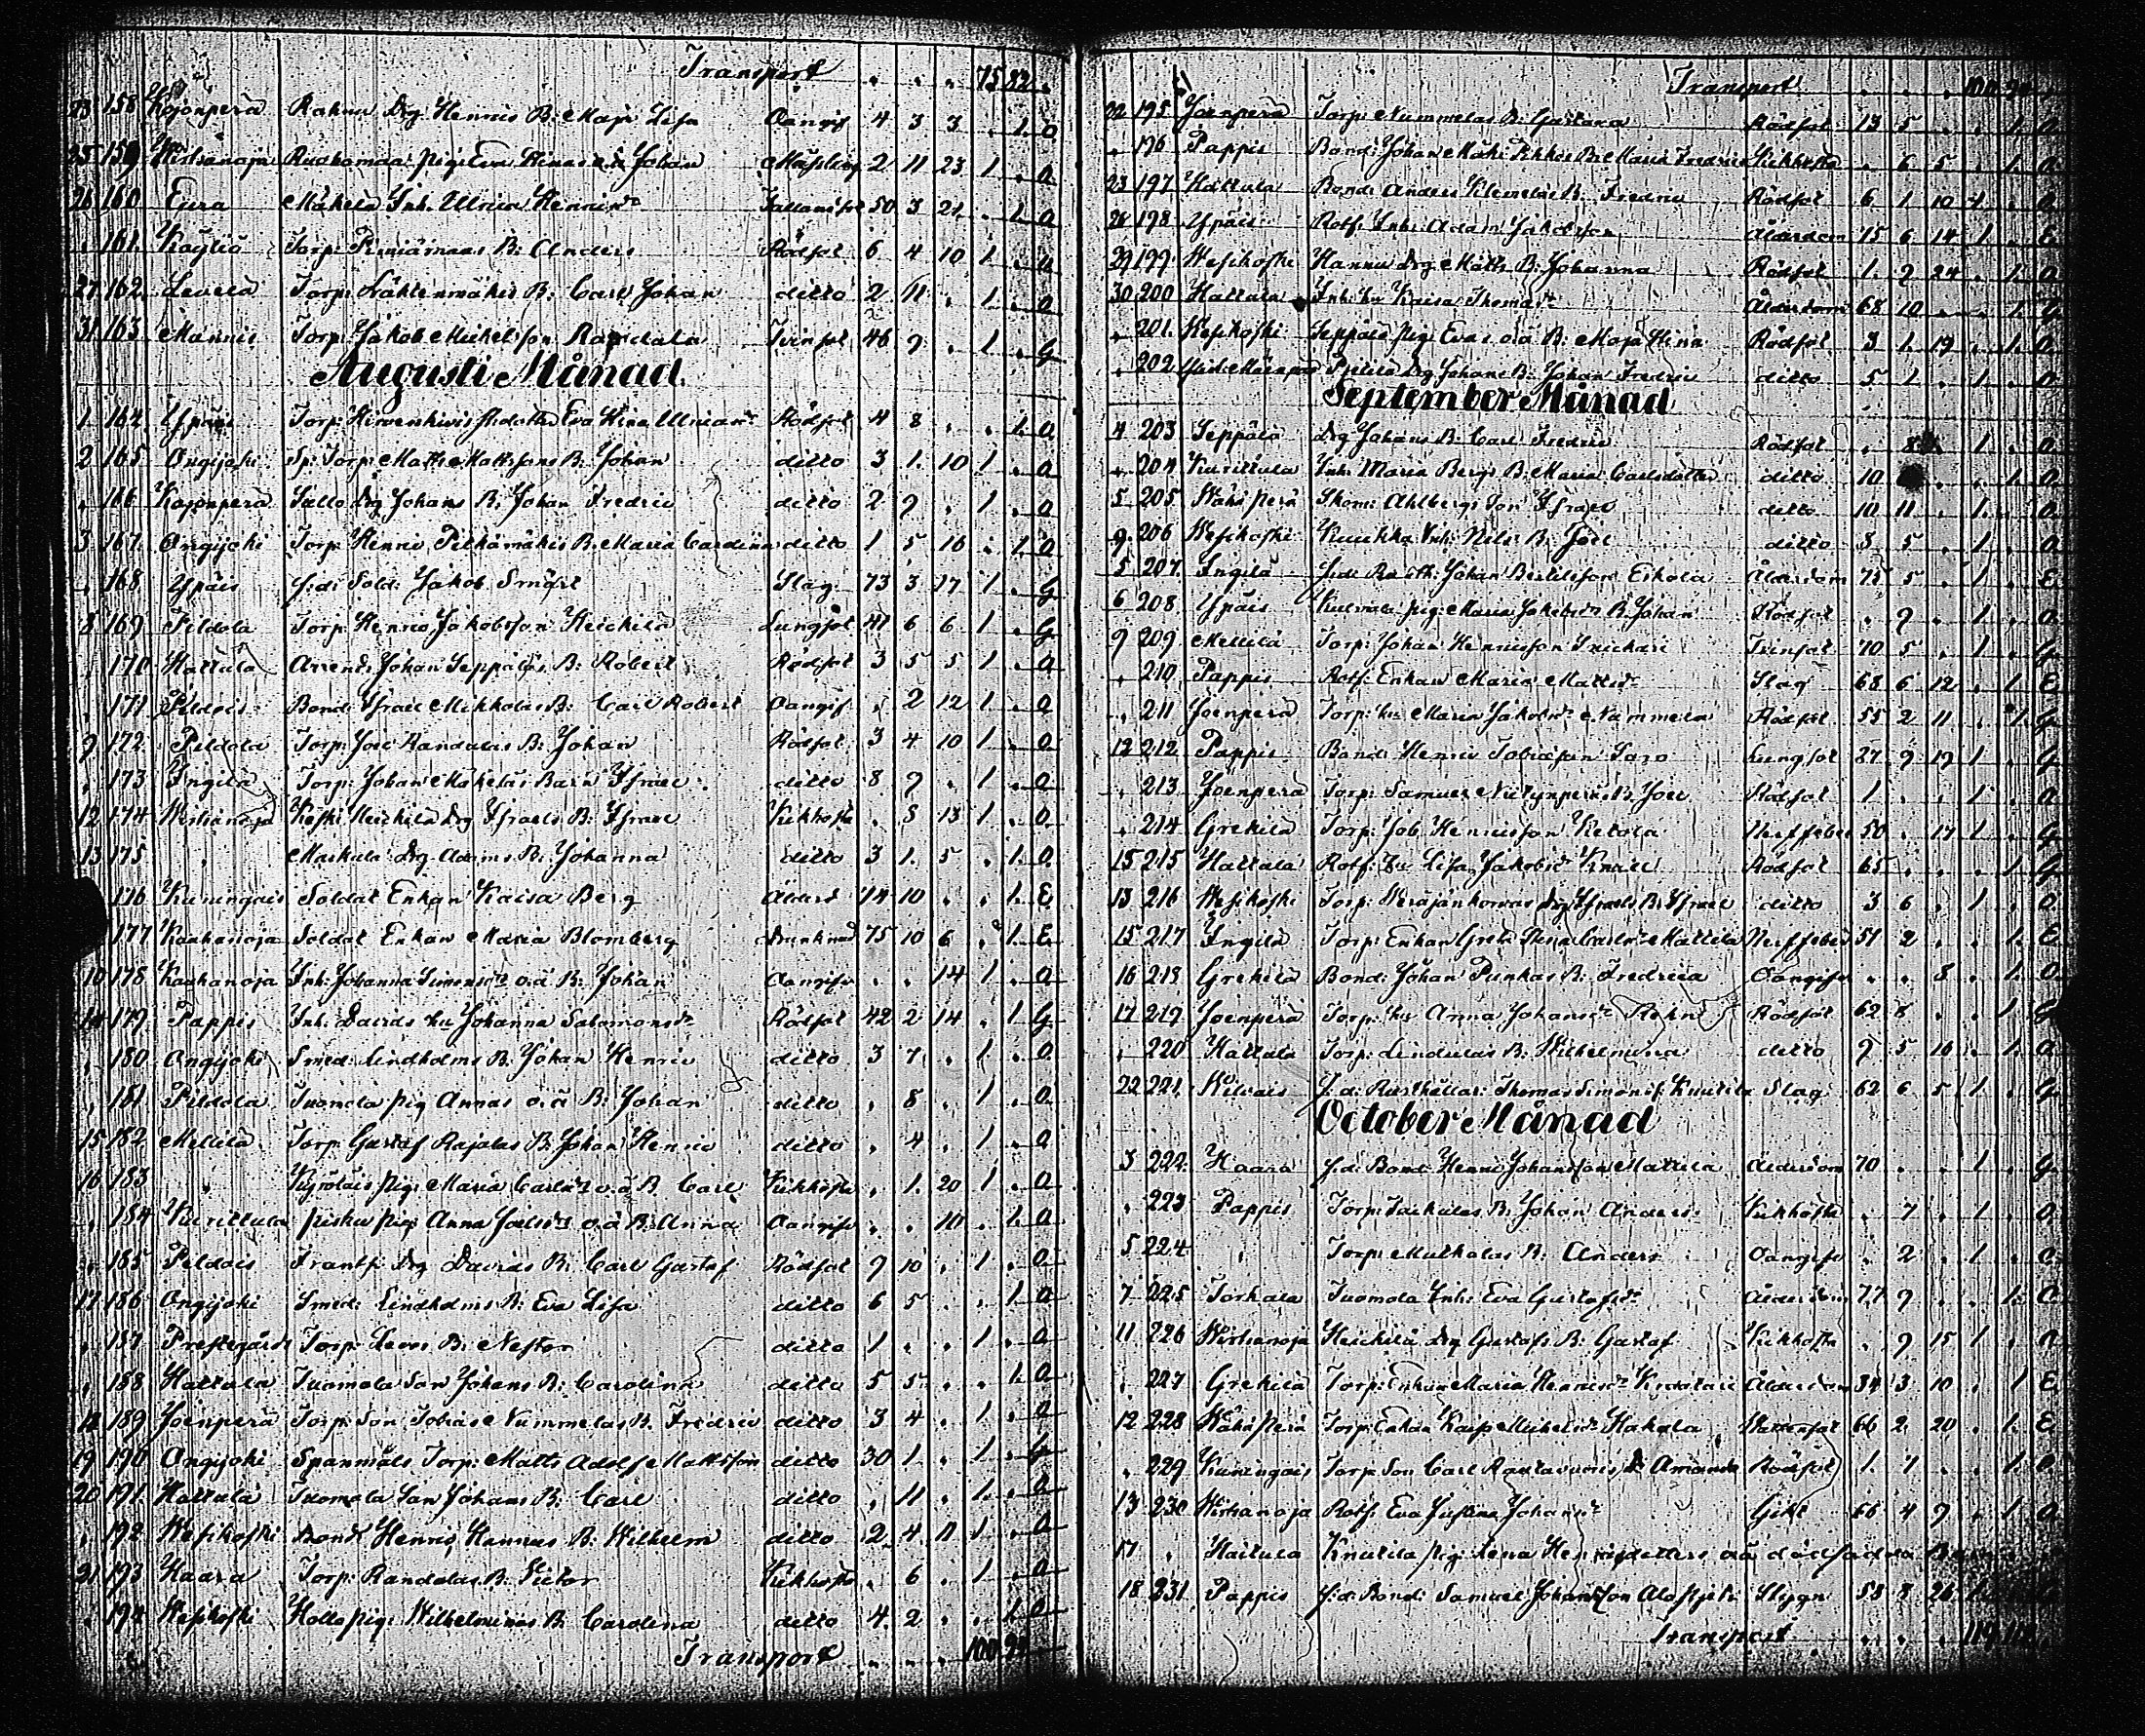 Transport . . . 75 82 .
23 158 Kojonperä Rahns Drg Henrics B: Maja Lisa Oangif 4 3 3 . 1. O
25 159 Wirtsanoja Ruohomaa pig: Eva Stinas oä Johan Mässling 2 11 23 1 . O
26 160 Eura Mäkelä Inh. Ulrica Henricsdr 50 3 21 . 1. O
. 161 Köyliö Torp: B: Anders Rödsot 6 4 10 1 . O
27 162 Levelä Torp: Lähtenmäkis B: Carl Johan ditto 2 11 . 1 . O
31 163 Mannis Torp: Jakob Michelsson Rapdala Tvinsot 46 9 . 1 . G
Augusti Månad
1 164 Ypäis Torp: Eva Stina Rödsot 4 8 . . 1. O
2 165 Ongijoki Sp: Torp: Matts Mattssons B: Johan ditto 3 1. 10 1 . O
. 166 Kojonperä Sallo Drg Johans B: Johan Fredric ditto 2 9 . 1 . O
3 167 Ongijoki Torp: Henric Pitkämäkis B: Maria Carolina ditto 1 5 16 . 1 O
. 168 Ypäis f:d: Sold: Jakob Smört Slag 73 3 17 1 . G
8 169 Pildola Torp: Henric Jakobsson Heickilä Lungsot 41 6 6 1 . G
. 170 Hattula Arrend: Johan Seppäläs B: Robert Rödsot 3 5 5 1 . O
. 171 Pildois Bond: Israel Mikkolas B: Carl Robert Oangif . 2 12 1 . O
9 172 Pildola Torp: Joel Randalas B: Johan Rödsot 3 4 10 1 . O
. 173 Ingilä Torp: Johan Mäkeläs Barn Israel ditto 8 9 . 1 . O
12 174 Wirtsanoja Koski Heickilä drg Israels B: Israel Kikhosta . 5 13 1 . O
13 175 . Markula Drg Adams B: Johanna ditto 3 1. 5 . 1. O
. 176 Kuningais Soldat Enkan Kaisa Berg Ålderd 74 10 . . 1. E
. 177 Kauhanoja Soldat Enkan Maria Blomberg Drunknad 75 10 6 . 1. E
10 178 Kauhanoja Inh: Johanna Simonsdr oä B: Johan Oangifv . . 14 1 . O
14 179 Pappis Inh. Davids hu Johanna Salomonsdr Rödsot 42 2 14 . 1 G
. 180 Ongijoki Smed: Lindholms B: Johan Henric ditto 3 7 . 1 . O
. 181 Pildola Tuomola pig Annas oä B: Johan ditto . 8 . 1 . O
15 182 Mellilä Torp: Gustaf Rajalas B: Johan Henric ditto . 4 . 1 . O
16 183 . Kyröläis pig: Maria Carlsdr oä B: Carl Kikhosta . 1. 20 1 . O
. 184 Kurittula Pisku pig: Anna Joelsdr oä B: Anna Oangifv . . 10 . 1. O
. 185 Peldois Frantsi Drg Davids B: Carl Gustaf Rödsot 9 10 . 1 . O
17 186 Ongijoki Smed: Lindholms B: Eva Lisa ditto 6 5 . . 1. O
. 187 Prestegård Torp: Levos B: Nestor ditto 1 . . 1 . O
. 188 Hattula Tuomola Son Johans B: Carolina ditto 5 5 . . 1. O
18 189 Joenperä Torp: Son Tobias Nummelas B: Fredric ditto 3 4 . 1 . O
19 190 Ongijoki Spanmåls Torp: Matts Adolf Mattsson ditto 30 1. . 1 . G
20 191 Hattula Tuomola Son Johans B: Carl ditto . 11 . 1. . O
. 192 Wesikoski Bond: Henric Hannus B: Wilhelm ditto 2 4 11 1 . O
21 193 Haara Torp: Randalas B: Victor Kikhosta . 6 . 1 . O
. 194 Wesikoski Hollo pig: Wilhelminas B: Carolina ditto 4 2 . . 1. O
Transport . . . 100 94
Transport . . . 100 94
22 195 Joenperä Torp: Nummelas B: Gustava Rödsot 13 5 . . 1. O
. 176 Pappis Bond: Johan B: Maria Fredrica Kikhosta . 6 5 . 1. O
23 197 Hattula Bond: Anders B: Fredric Rödsot 6 1. 10 1 . O
28 198 Ypäis Rotf: Inh: Adam Jakobsson Ålderdom 75 6 14 1 . E
29 199 Wesikoski Hannu Drg Matts B: Johanna Rödsot 1. 9 24 . 1. O
30 200 Hattula Inh: hu Kaisa Thomasdr Ålderdom 68 10 . . 1. G
. 201 Wesikoski Seppälä pig: Evas oä B: Maja Stina Rödsot 3 1. 19 . 1. O
. 202 Drg Johans B: Johan Fredric ditto 5 1 . 1 . O
September Månad
4 203 Seppälä Drg Johans B: Carl Fredric Rödsot . 8 . 1 . O
. 204 Kurittula Inh: Maria Bergs B: Maria Carlsdotter ditto 10 . . 1. O
5 205 Wähäperä Skom: Ahlbergs Son Israel ditto 10 11 . 1. . O
9 206 Wesikoski Kuukka Inh: Nils B: Joel ditto 3 5 . 1 . O
5 207 Ingilä f:de Johan Bertilsson Eikola Ålderdom 75 5 . 1 . E
6 208 Ypäis pig: Maria Jakobsdr B: Johan Rödsot . 9 . 1 . O
9 209 Mellilä Torp: Johan Henricsson Tvinsot 70 5 . 1 . G
. 210 Pappis Rotf: Enkan Maria Mattsdr Slag 68 6 12 . 1 E
. 211 Joenperä Torp: hu Maria Jakobsdr Nummela Rödsot 55 2 11 . 1. G
12 212 Pappis Bond: Henric Tobiasson Saro Lungsot 27 9 19 1 . G
. 213 Joenperä Torp: Samuel B: Joel Rödsot 1 . . 1 . O
. 214 Grekilä Torp: Job Henricsson Ketola Nerffeber 50 . 17 1 . G
15 215 Hattula Rotf: hu Lisa Jakobsdr Knall Rödsot 65 . . . 1 G
13 216 Wesikoski Torp: Drg Israels B: Israel ditto 3 6 . 1 . O
15 217 Ingilä Torp: Enkan Greta Stina Carlsdr Mattila Nerffeber 51 2 . . 1. E
16 218 Grekilä Bond: Johan Punkas B: Fredrica Oangifv . . 3 . 1. O
17 219 Joenperä Torp: hu Anna Johansdr Rödsot 62 8 . . 1 G
. 220 Hattula Torp: Lindulas B: Wilhelmina ditto 9 5 16 . 1. O
22 221 Kilvais f.d: Rusthållar: Thomas Simonss: Knutila Slag 62 6 5 1 . G
October Månad
3 222 Haara f.d: Bond: Henric Johansson Mattila Ålderdom 70 . . 1 . G
. 223 Pappis Torp: B: Johan Anders Kikhosta . 7 . 1 . O
5 224 . Torp: B: Anders Oangifv . 2 . 1 . O
7 225 Torkala Tuomola Inh: Eva Gustafsdr Ålderdom 77 9 . . 1.
11 226 Wirtsanoja Heickilä drg Gustafs B: Gustaf Kikhosta . 9 15 1 . O
. 227 Grekilä Torp: Enkan Maria Henricsdr Ålderdom 84 3 10 . 1 E
12 228 Wähäperä Torp: Enkan Kaisa Michelsdr Hakala Wattensot 66 2 20 . 1. E
. 229 Kuningais Torp: Son Carl B: Amanda Rödsot 1. 7 . . 1.
13 230 Wirtsanoja Rotf: Eva Justina Johansdr Gikt 66 4 9 . 1. O
17 . Hattula Knutila pig: Lena Henricsdotters oä dödfödda
18 231 Pappis f:d: Bond: Samuel Johansson Alastjoki Stygn 58 8 26
Transport . . . 119 112